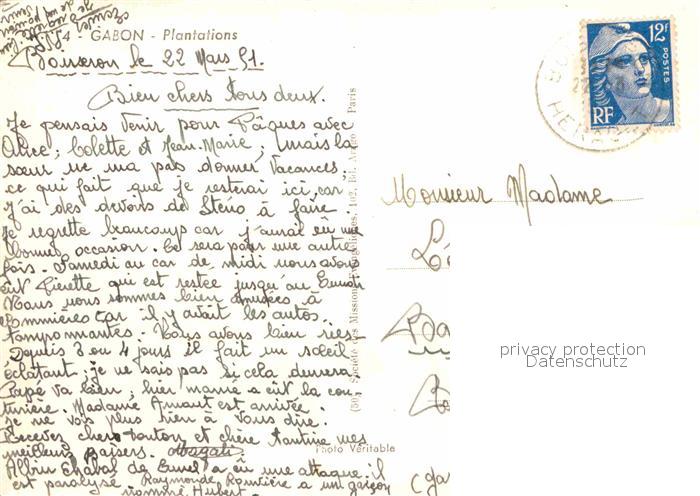 4 - GABON - Plantations
Bousseron le 22 Mars 51.
Bien chers tous deux.
Je pensais venir pour Pâques avec
Alice, Colette et Jean-Marie, mais la
sœur ne m'a pas donner vacances
ce qui fait que je resterai ici car
j'ai des devoirs de Sténo à faire
Je regrette beaucoup car j'aurai eu une
bonne occasion. Ce sera pour une autre
fois. Samedi au car de midi nous avons
eût Pierette qui est restée jusqu'au
Nous nous sommes bien amusées à
Sommières car il y avait les autos
tamponnantes. Nous avons bien ries
Depuis 3 ou 4 jours il fait un soleil
éclatant. je ne sais pas si cela durera
Papé va bien, hier mamé a eût la cou-
turière. Madame Arnaut est arrivée.
Je ne vois plus rien à vous dire.
Recevez chers tonton et chère tantine mes
meilleurs baisers. Magali
Albin Chabal de a eu une attaque il
est paralysé Raymonde Rouvière a un garçon
nommé Hubert.
Société des Missions Evangéliques, 102, Bd. Arago - Paris
Photo Véritable
12F
POSTES
RF
Monsieur Madame
privacy protection
Datenschutz